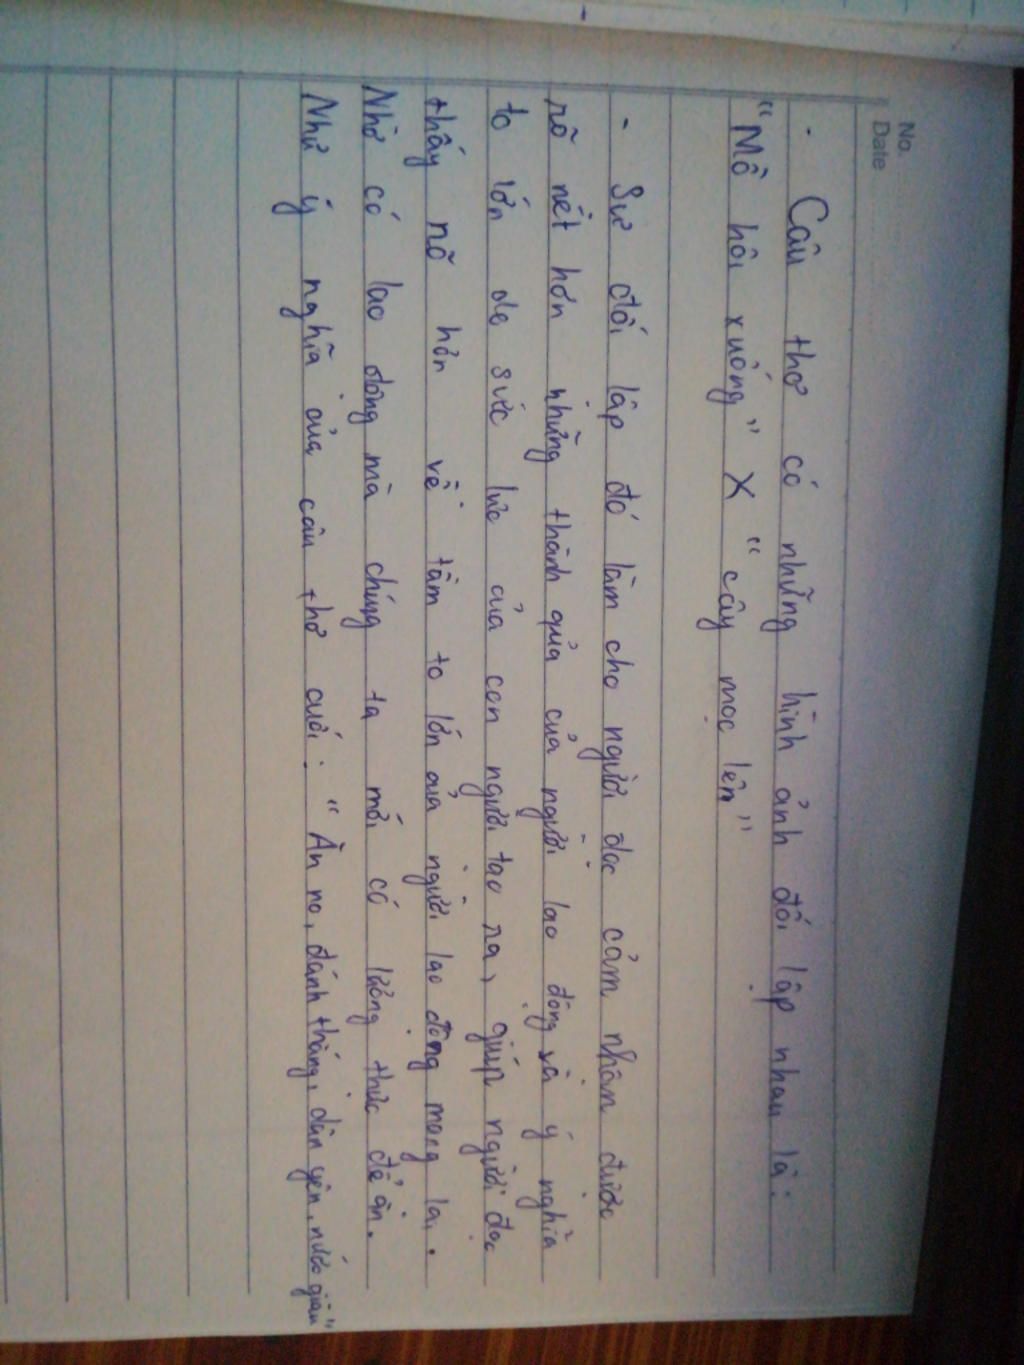 No.
Date
- Câu thơ có những hình ảnh đối lập nhau là:
"Mồ hôi xuống" X "cây mọc lên"
- Sự đối lập đó làm cho người đọc cảm nhận được
rõ nét hơn những thành quả của người lao động và ý nghĩa
to lớn do sức lực của con người tạo ra, giúp người đọc
thấy rõ hơn về tầm to lớn của người lao động mang lại.
Nhờ có lao động mà chúng ta mới có lương thực để ăn.
Như ý nghĩa của câu thơ cuối: "Ăn no, đánh thắng, dân yên, nước giàu"